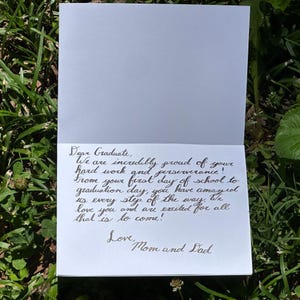 Dear Graduate,
We are incredibly proud of your
hard work and perserverance!
From your first day of school to
graduation day, you have amazed
us every step of the way. We
love you and are excited for all
that is to come!
Love,
Mom and Dad